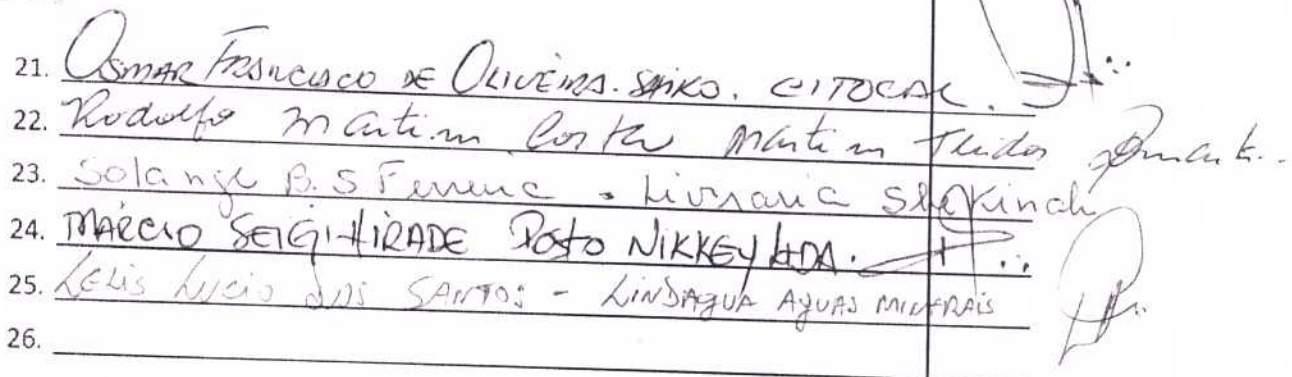 21. OSMAR FRANCISCO DE OLIVEIRA. SAIKO. CITOCAL.
22. Rodolfo Martim Costa Martim Tecidos
23. Solange B. S Ferreira . Livraria Shekinah
24. MÁRCIO SEIGI HIRADE POSTO NIKKEY LTDA.
25. LELIS LUCIO DOS SANTOS - LINDAGUA AGUAS MINERAIS
26.